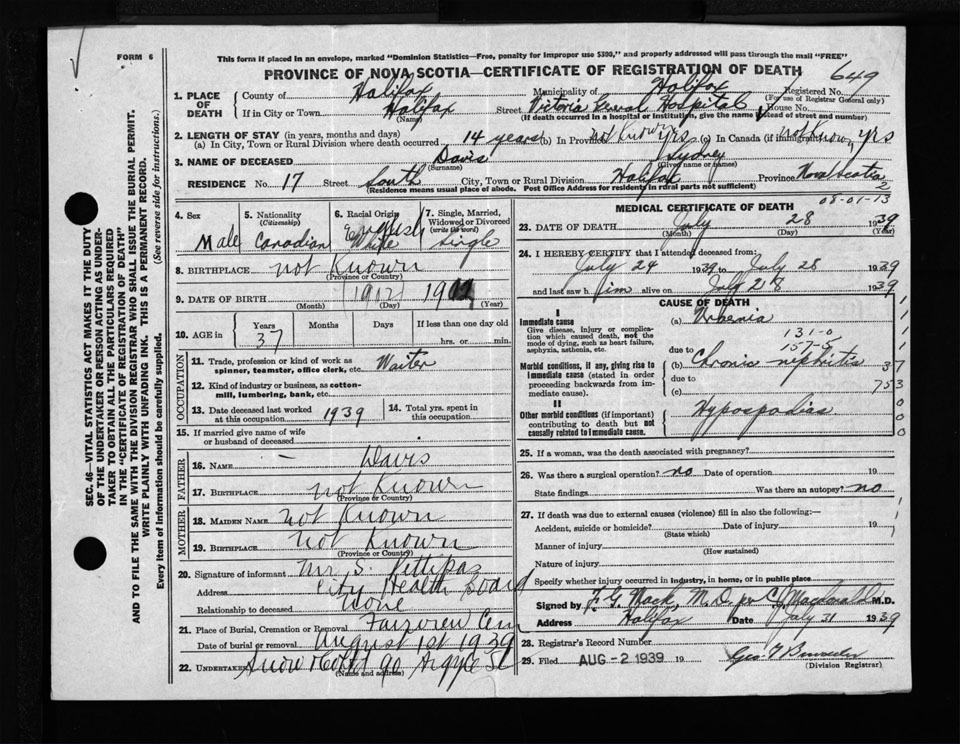 FORM 6
This form if placed in an envelope, marked "Dominion Statistics—Free, penalty for improper use $300," and properly addressed will pass through the mail "FREE"
PROVINCE OF NOVA SCOTIA—CERTIFICATE OF REGISTRATION OF DEATH 649
SEC. 46—VITAL STATISTICS ACT MAKES IT THE DUTY
OF THE UNDERTAKER OR PERSON ACTING AS UNDER-
TAKER TO OBTAIN ALL THE PARTICULARS REQUIRED
IN THE "CERTIFICATE OF REGISTRATION OF DEATH"
AND TO FILE THE SAME WITH THE DIVISION REGISTRAR WHO SHALL ISSUE THE BURIAL PERMIT.
WRITE PLAINLY WITH UNFADING INK. THIS IS A PERMANENT RECORD.
Every item of Information should be carefully supplied. (See reverse side for instructions.)
1. PLACE OF DEATH
County of Halifax Municipality of Halifax Registered No.
(For use of Registrar General only)
If in City or Town Halifax Street Victoria General Hospital House No.
(Name) (If death occurred in a hospital or institution, give the name instead of street and number)
2. LENGTH OF STAY (in years, months and days)
(a) In City, Town or Rural Division where death occurred 14 years (b) In Province not Known yrs (c) In Canada (if immigrant) not Know yrs
3. NAME OF DECEASED Davis Sydney
(Surname) (Given name or names)
RESIDENCE No. 17 Street South City, Town or Rural Division Halifax Province Nova Scotia
(Residence means usual place of abode. Post Office Address for residents in rural parts not sufficient) 2
08-01-13
4. Sex
Male
5. Nationality
(Citizenship)
Canadian
6. Racial Origin
English
White
7. Single, Married,
Widowed or Divorced
(write the word)
Single
8. BIRTHPLACE not Known
(Province or Country)
9. DATE OF BIRTH 1902
(Month) (Day) (Year)
10. AGE in Years Months Days If less than one day old
37 hrs. or min.
OCCUPATION
11. Trade, profession or kind of work as
spinner, teamster, office clerk, etc. Waiter
12. Kind of industry or business, as cotton-
mill, lumbering, bank, etc.
13. Date deceased last worked
at this occupation 1939
14. Total yrs. spent in
this occupation.
15. If married give name of wife
or husband of deceased
FATHER
16. NAME Davis
17. BIRTHPLACE not Known
(Province or Country)
MOTHER
18. MAIDEN NAME not Known
19. BIRTHPLACE not Known
(Province or Country)
20. Signature of informant Mr S.
Address City Health Board
Relationship to deceased None
21. Place of Burial, Cremation or Removal Fairview Cem
Date of burial or removal August 1st 1939
22. UNDERTAKER Snow & Co Ltd 90 Argyle St
(Name and address)
MEDICAL CERTIFICATE OF DEATH
23. DATE OF DEATH July 28 1939
(Month) (Day) (Year)
24. I HEREBY CERTIFY that I attended deceased from:
July 24 1939 to July 28 1939
and last saw him alive on July 28 1939
CAUSE OF DEATH
I
Immediate cause
Give disease, injury or complica-
tion which caused death, not the
mode of dying, such as heart failure,
asphyxia, asthenia, etc.
(a) Uraemia
131-0
157-5
due to
Morbid conditions, if any, giving rise to
immediate cause (stated in order
proceeding backwards from im-
mediate cause).
(b) Chronic nephritis 37
due to
(c) 753
II
Other morbid conditions (if important)
contributing to death but not
causally related to immediate cause.
Hypospadias
25. If a woman, was the death associated with pregnancy?
26. Was there a surgical operation? no Date of operation 19
State findings Was there an autopsy? no
27. If death was due to external causes (violence) fill in also the following:—
Accident, suicide or homicide? Date of injury 19
(State which)
Manner of injury
(How sustained)
Nature of injury
Specify whether injury occurred in industry, in home, or in public place
Signed by F. G. Mack, M.D. per C J Macdonald M.D.
Address Halifax Date July 31 1939
28. Registrar's Record Number
29. Filed AUG -2 1939 19
(Division Registrar)